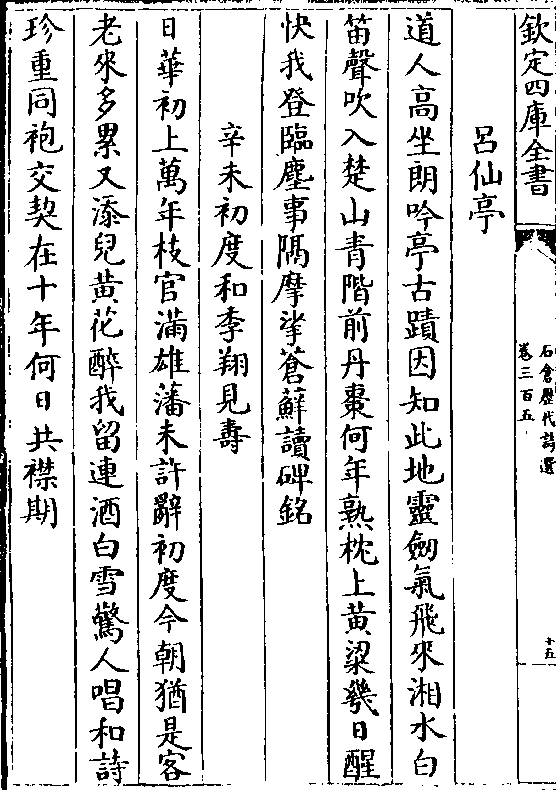 欽定四庫全書
石倉歷代詩選
卷三百五
十五
呂仙亭
道人高坐朗吟亭古蹟因知此地靈劒氣飛來湘水白
笛聲吹入楚山青階前丹棗何年熟枕上黄粱幾日醒
快我登臨塵事隔摩挲蒼蘚讀碑銘
辛未初度和季翔見壽
日華初上萬年枝官滿雄藩未許辭初度今朝猶是客
老來多累又添兒黄花醉我留連酒白雪驚人唱和詩
珍重同袍交契在十年何日共襟期